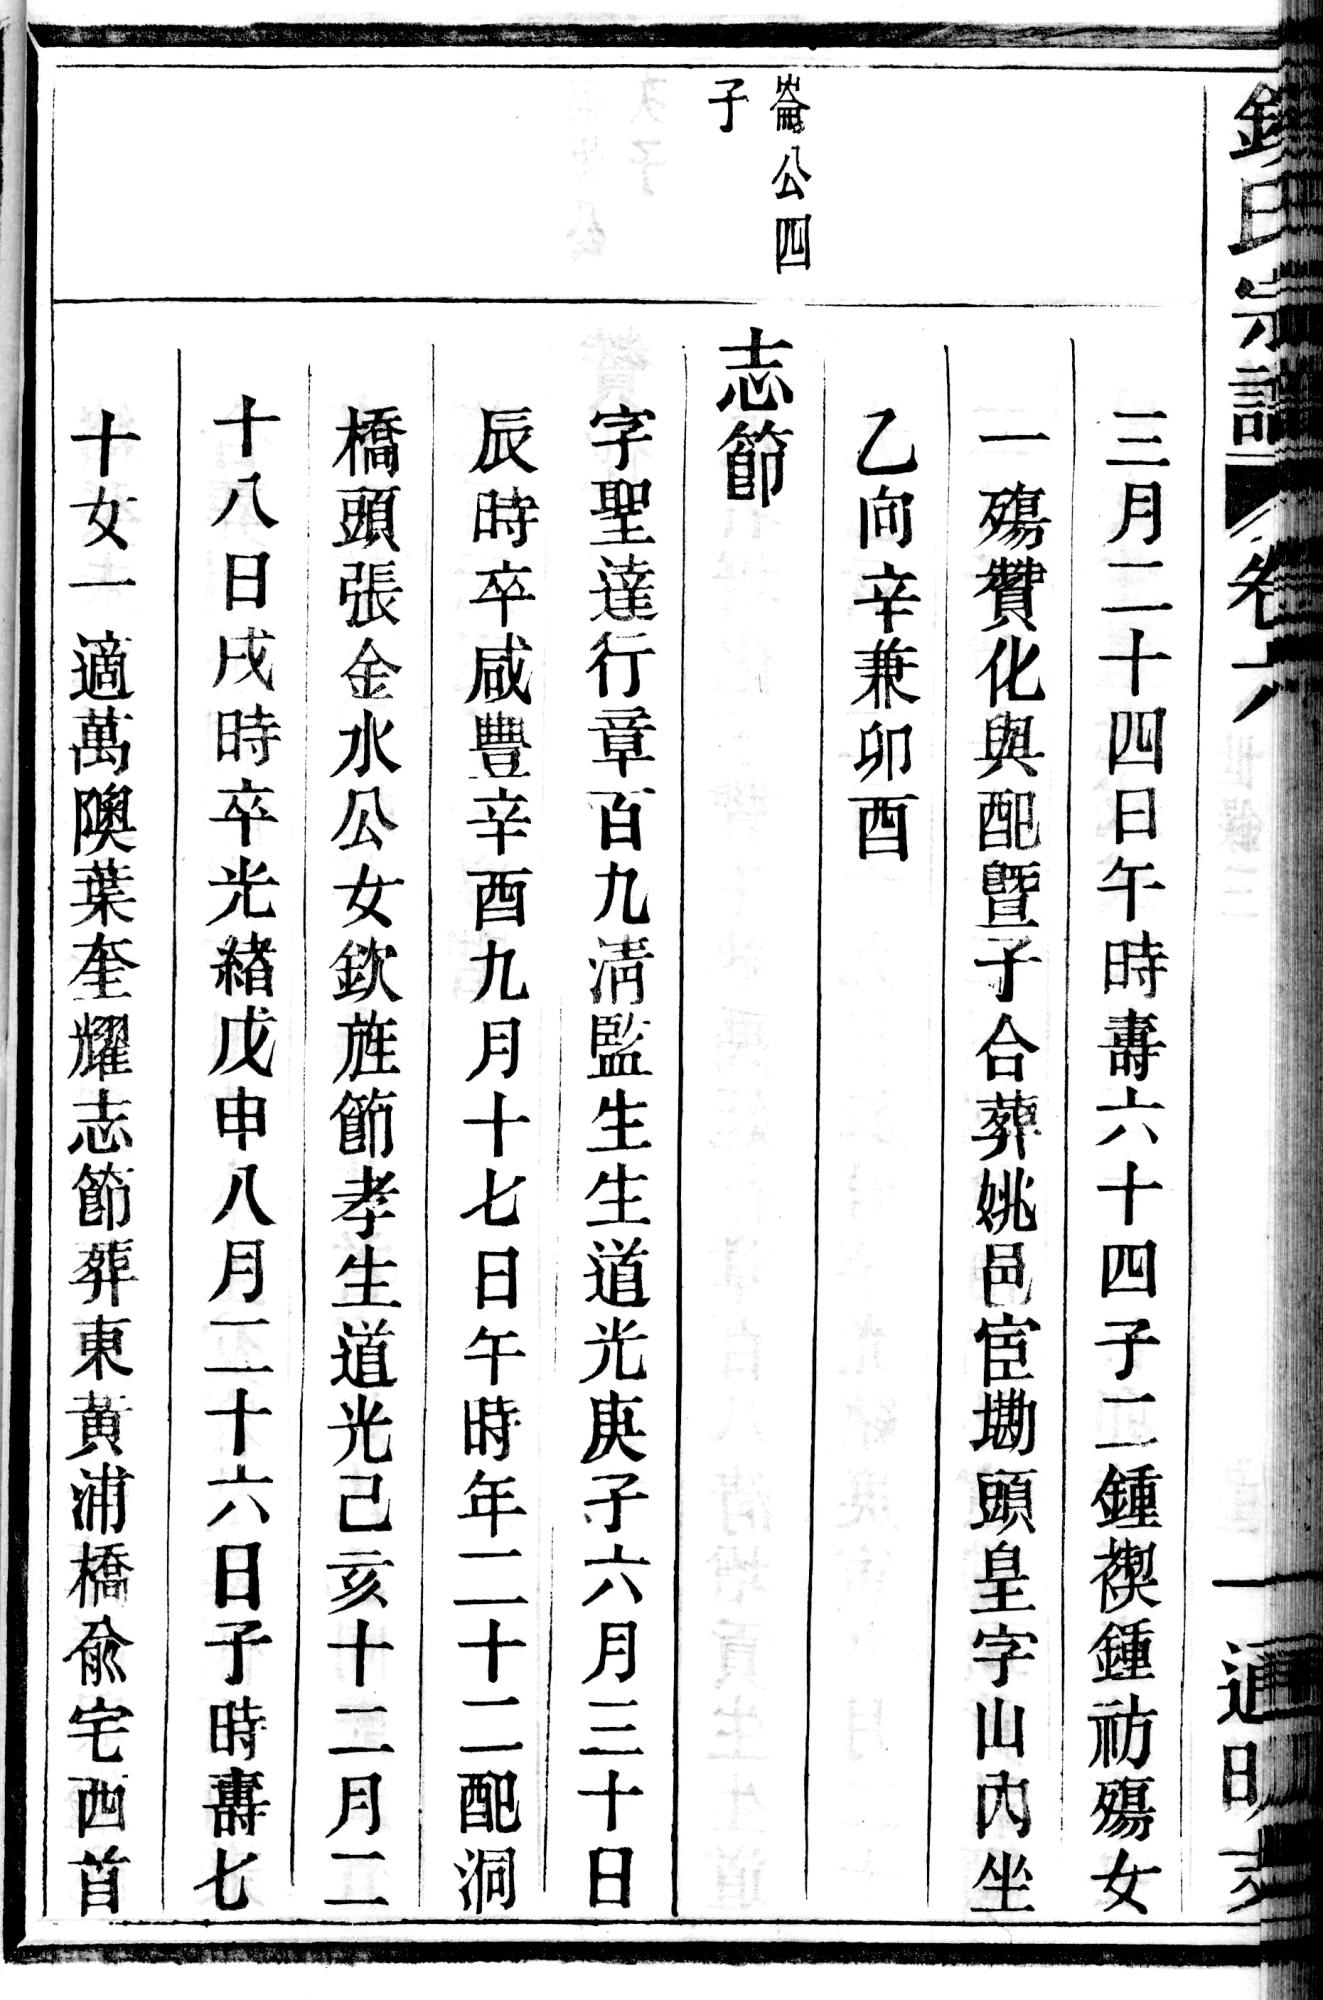 錢氏宗譜 卷六 一 通明支
崙公四
子
三月二十四日午時壽六十四子二鍾禊鍾祊殤女
一殤贊化與配暨子合葬姚邑宦墈頭皇字山內坐
乙向辛兼卯酉
志節
字聖達行章百九清監生生道光庚子六月三十日
辰時卒咸豐辛酉九月十七日午時年二十二配洞
橋頭張金水公女欽旌節孝生道光己亥十二月二
十八日戌時卒光緒戊申八月二十六日子時壽七
十女一適萬隩葉奎耀志節葬東黃浦橋俞宅西首